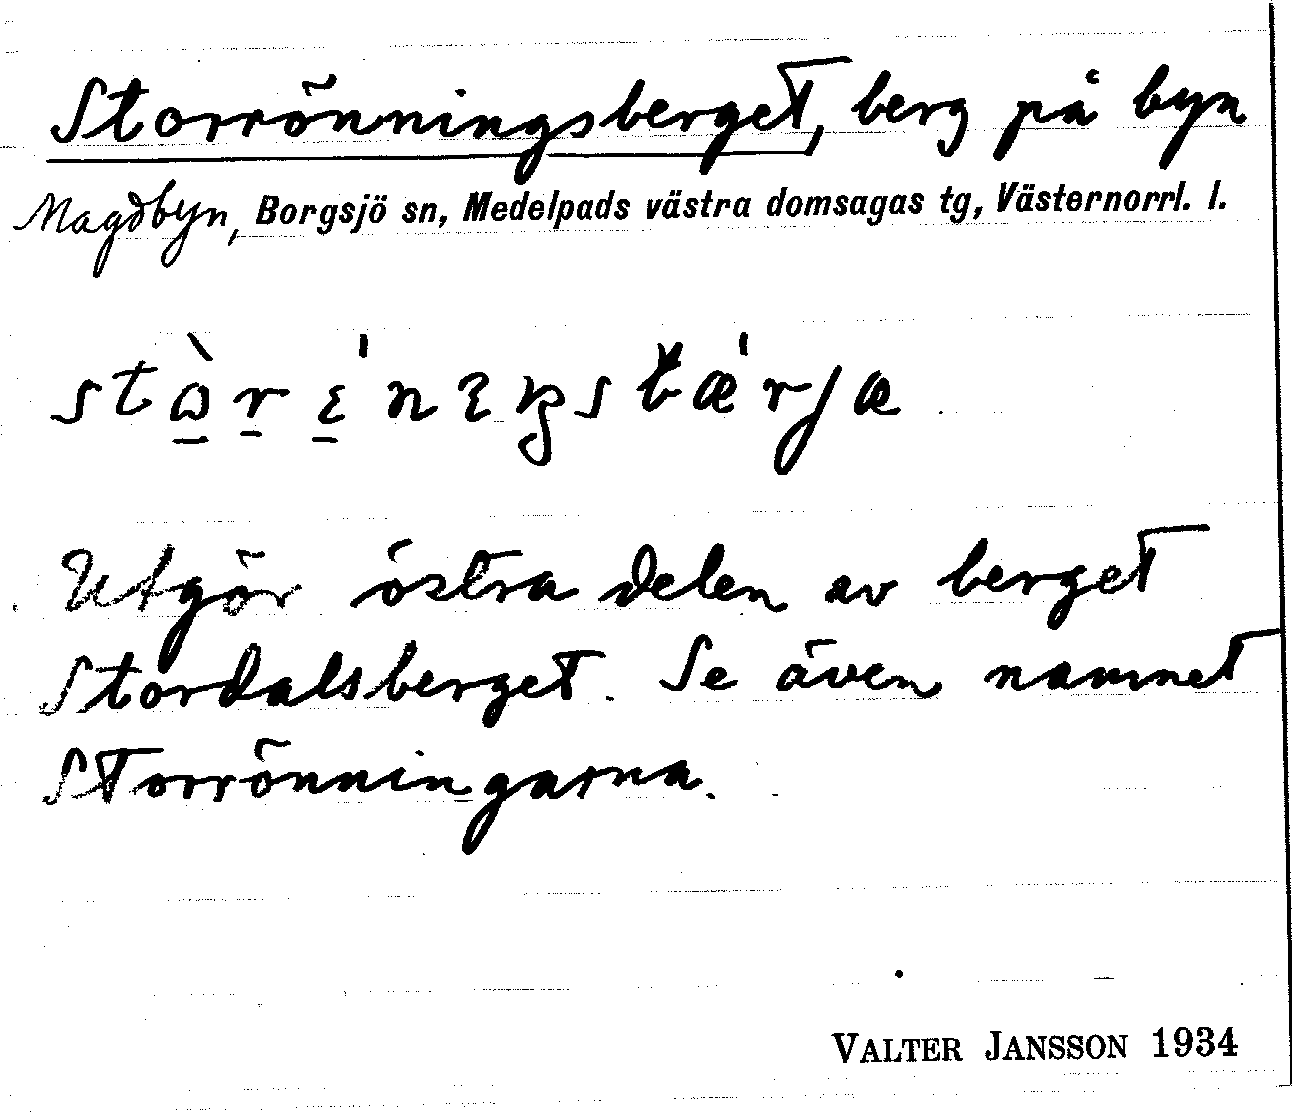 Storrönningsberget, berg på byn
Magdbyn, Borgsjö sn, Medelpads västra domsagas tg, Västernorrl. l.
Utgör östra delen av berget
Stordalsberget. Se även namnet
Storrönningarna.
VALTER JANSSON 1934